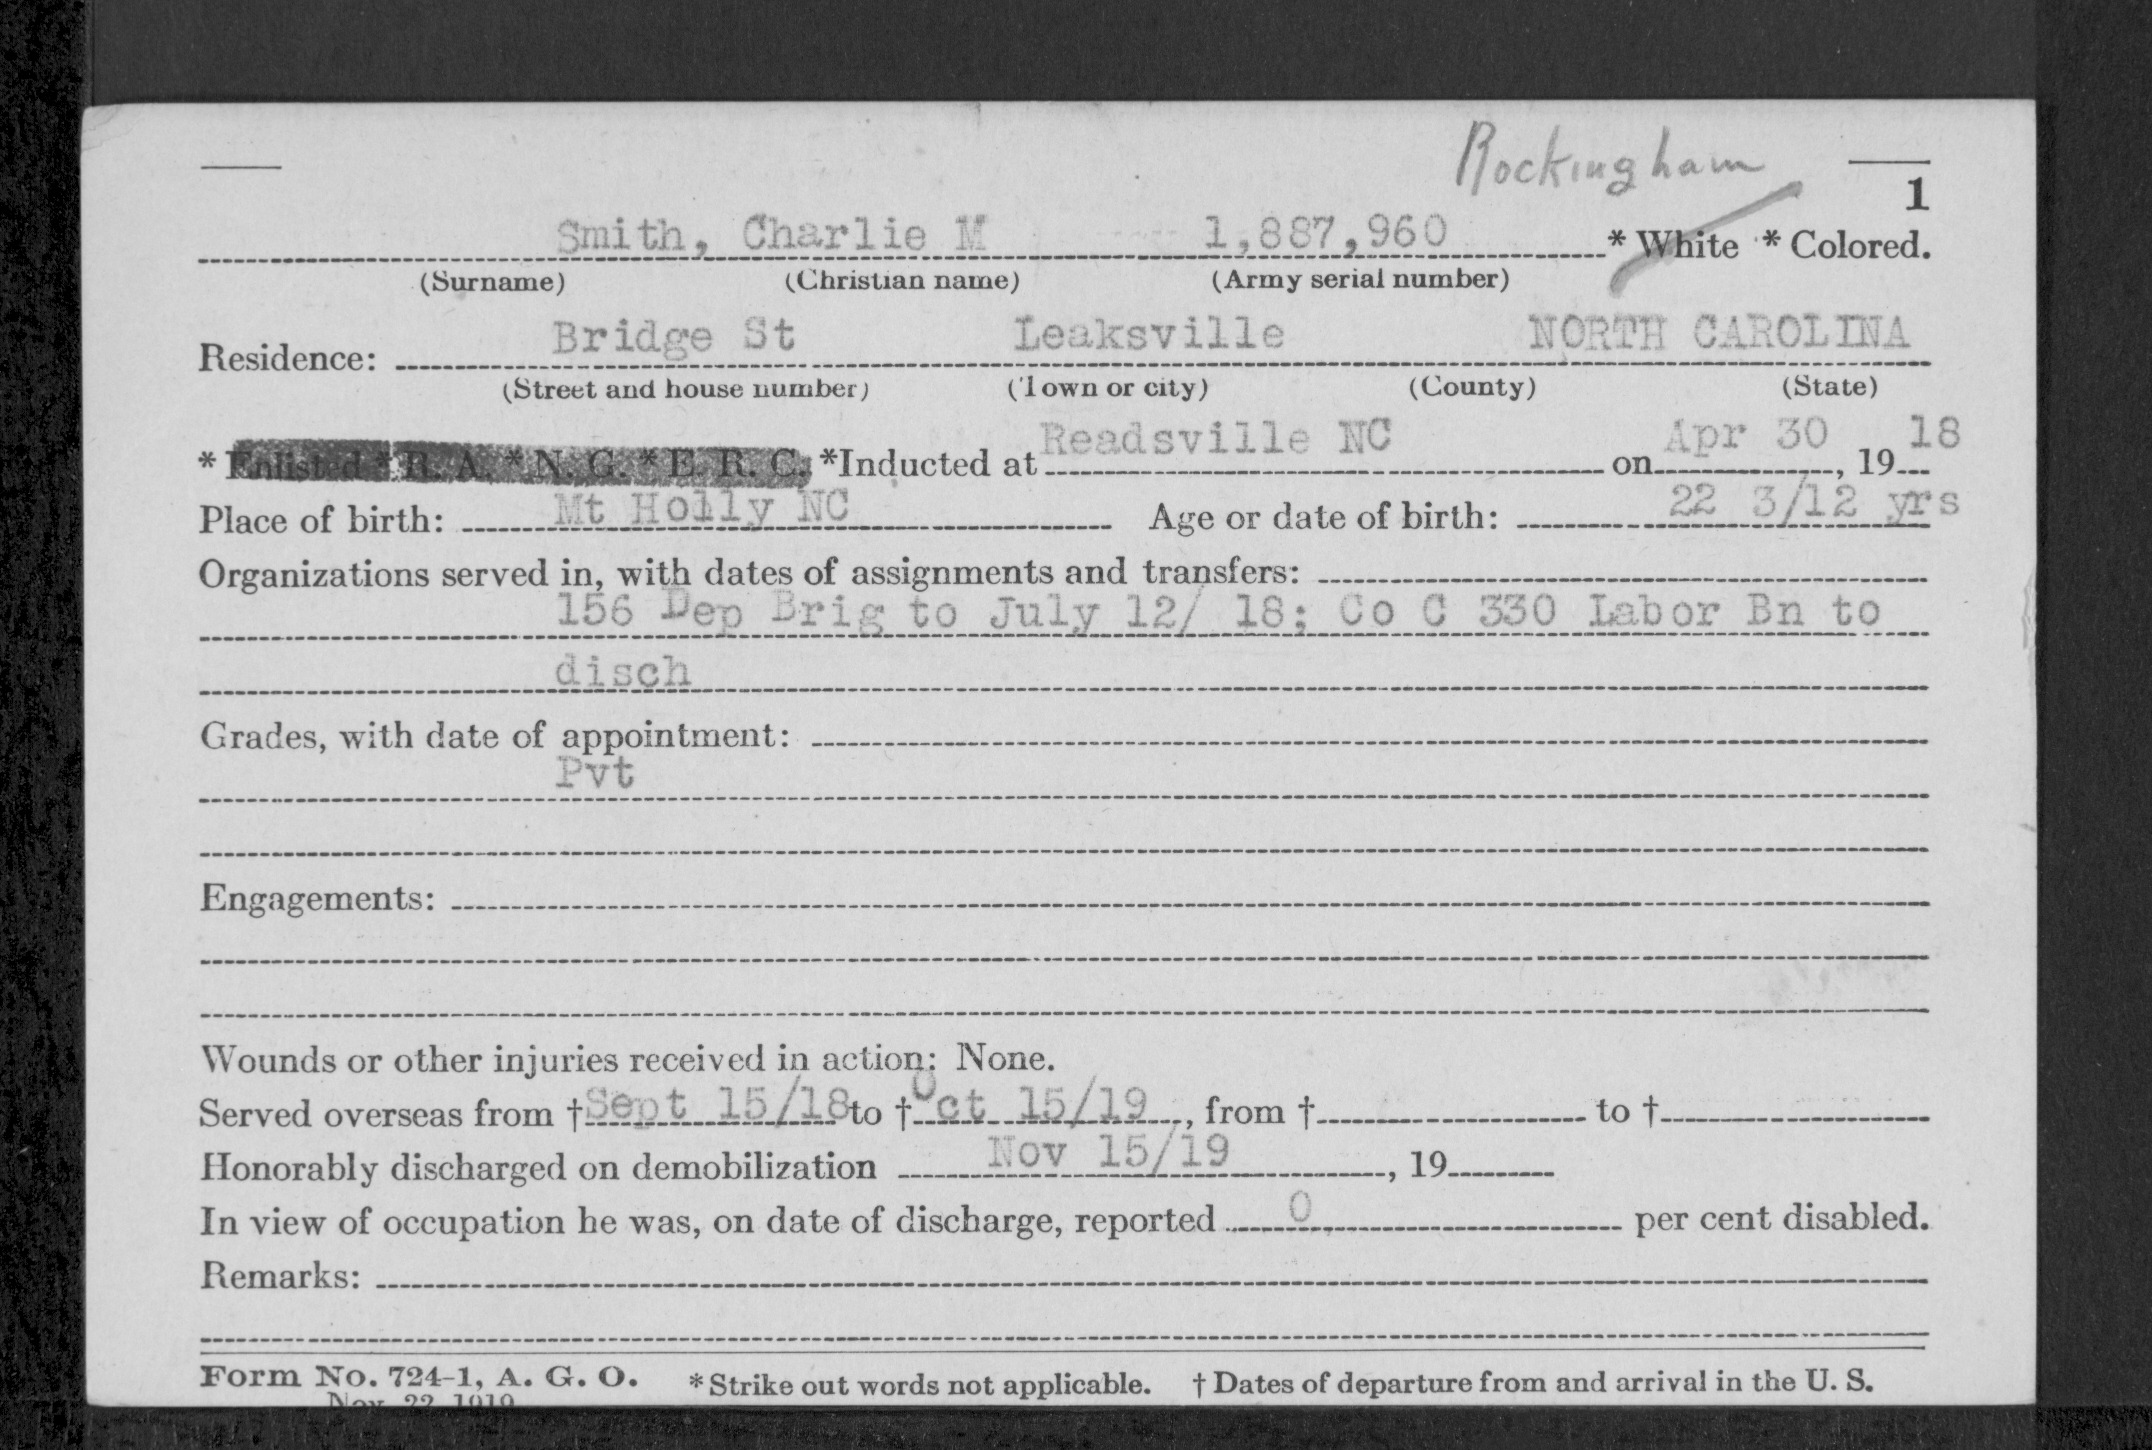 Rockingham
1
Smith, Charlie M 1,887,960 * White * Colored.
(Surname) (Christian name) (Army serial number)
Residence: Bridge St Leaksville NORTH CAROLINA
(Street and house number) (Town or city) (County) (State)
* Enlisted * R. A. * N. G. * E. R. C. *Inducted at Readsville NC on Apr 30, 19 18
Place of birth: Mt Holly NC Age or date of birth: 22 3/12 yrs
Organizations served in, with dates of assignments and transfers:
156 Dep Brig to July 12/ 18; Co C 330 Labor Bn to
disch
Grades, with date of appointment:
Pvt
Engagements:
Wounds or other injuries received in action: None.
Served overseas from † Sept 15/18 to † Oct 15/19, from † to †
Honorably discharged on demobilization Nov 15/19, 19
In view of occupation he was, on date of discharge, reported 0 per cent disabled.
Remarks:
Form No. 724-1, A. G. O. * Strike out words not applicable. † Dates of departure from and arrival in the U. S.
Nov 22 1919